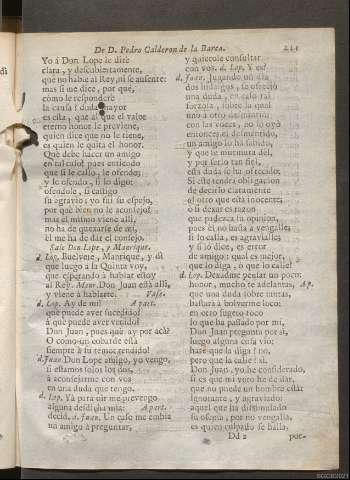 De D. Pedro Calderon de la Barca. 211
Yo à Don Lope le dirè
clara, y descubiertamente,
que no hable al Rey, ni se ausente:
mas si me dice, por què,
como le responderè
la causa? duda mayor
es esta, que al que el valor
eterno honor le previene,
quien dice que no le tiene,
es quien le quita el honor.
Què debe hacer un amigo
en tal caso? pues entiendo
que si le callo, le ofendo;
y le ofendo, si lo digo:
ofendole, si castigo
su agravio; yo fui su espejo,
por què bien no le aconsejo?
mas èl mismo viene alli,
no ha de quexarse de mi,
èl me ha de dar el consejo.
Sale Don Lope, y Manrique.
d. Lop. Buelvete, Manrique, y di
que luego à la Quinta voy,
que esperando à hablar estoy
al Rey. Manr. Don Juan està alli,
y viene à hablarte. Vase.
d. Lop. Ay de mi! Apart.
què puede aver sucedido?
à què puede aver venido?
Don Juan, pues què ay por acà?
O como un cobarde està
siempre à su temor rendido!
d. Juan Don Lope amigo, yo vengo,
si estamos solos los dos,
à aconsejarme con vos
en una duda que tengo.
d. Lop. Yà para oir me prevengo
alguna desdicha mia: Apart.
decid. d. Juan. Un caso me embia
un amigo à preguntar,
y quierole consultar
con vos. d. Lop. Y es?
d. Juan. Jugando un dia
dos hidalgos, se ofreciò
una duda, en caso tal
forzosa, sobre la qual
uno à otro desmintiò;
con las voces, no lo oyò
entonces el desmentido,
un amigo lo ha sabido,
y que se murmura dèl,
y por serlo tan fiel,
esta duda se ha ofrecido:
Si este tendrà obligacion
de decirlo claramente
al otro que està inocente;
ò si dexar es razon
que padezca su opinion,
pues èl no basta à vengalle:
si lo calla, es agravialle;
y si lo dice, es error
de amigo: qual es mejor,
que lo diga, ò que lo calle?
d. Lop. Dexadme pensar un poco:
honor, mucho te adelantas, Ap.
que una duda sobre tantas,
bastarà à bolverme loco:
en otro sugeto toco
lo que ha passado por mi,
Don Juan pregunta por sì,
luego alguna cosa viò:
harè que la diga? no,
pero que la calle? sì.
Don Juan, yo he considerado,
si es que mi voto he de dar,
que no puede un hombre estàr
ignorante, y agraviado:
aquel que ha dissimulado
su ofensa, por no vengalla,
es quien culpado se halla,
Dd 2 por-